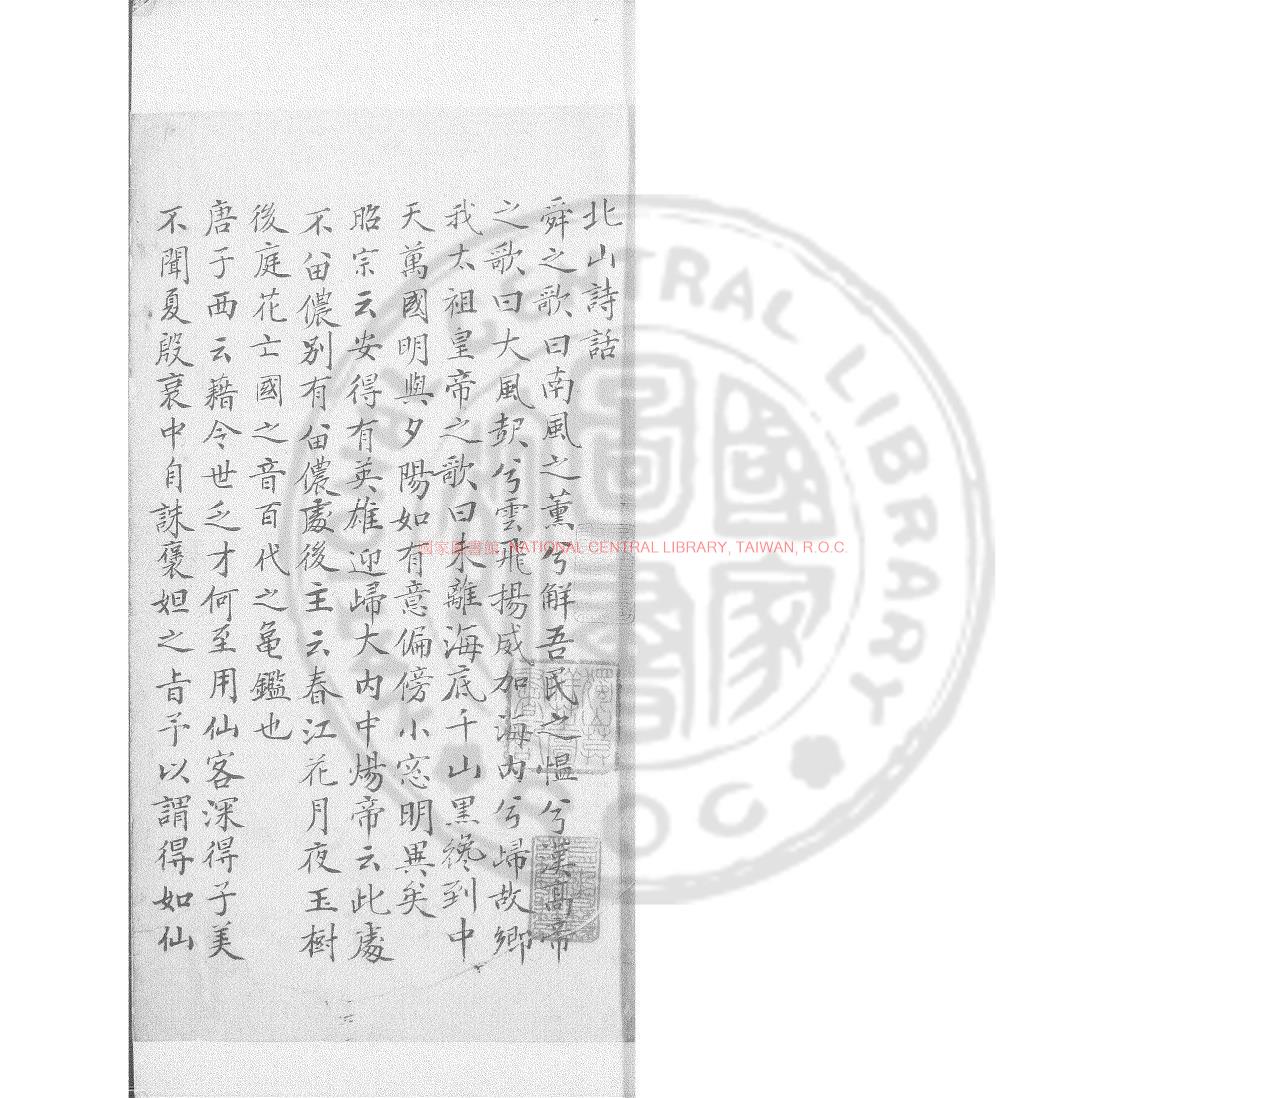 北山詩話
舜之歌曰南風之薰兮解吾民之慍兮漢高帝
之歌曰大風起兮雲飛揚威加海内兮歸故鄉
我太祖皇帝之歌曰未離海底千山黑纔到中
天萬國明與夕陽如有意偏傍小窓明異矣
昭宗云安得有英雄迎歸大内中煬帝云此處
不留儂別有留儂處後主云春江花月夜玉樹
後庭花亡國之音百代之龜鑑也
唐子西云藉令世乏才何至用仙客深得子美
不聞夏殷衰中自誅褒妲之旨予以謂得如仙
國家圖書館 NATIONAL CENTRAL LIBRARY, TAIWAN, R.O.C.
CENTRAL LIBRARY
國家圖